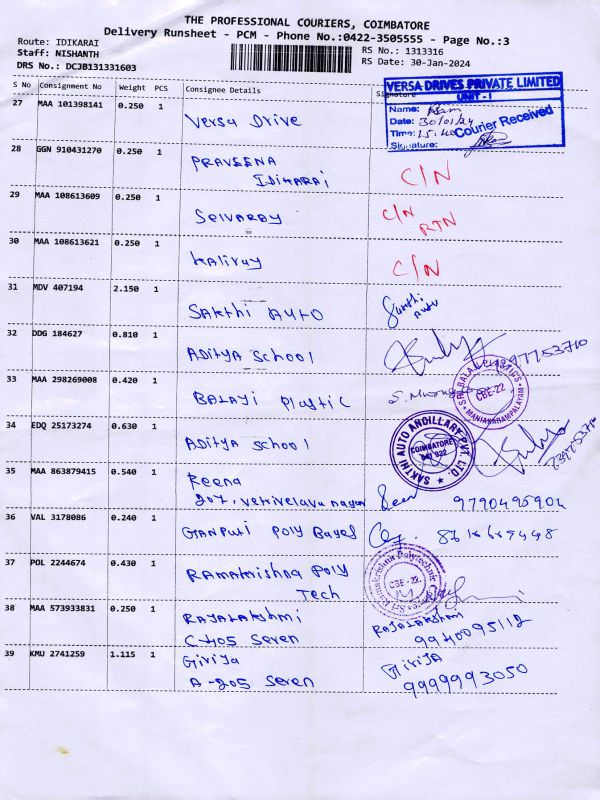 THE PROFESSIONAL COURIERS, COIMBATORE
Delivery Runsheet - PCM - Phone No.:0422-3505555 - Page No.:3
Route: IDIKARAI
RS No.: 1313316
Staff: NISHANTH
RS Date: 30-Jan-2024
DRS No.: DCJB131331603
S No Consignment No Weight PCS Consignee Details Signature
VERSA DRIVES PRIVATE LIMITED
UNIT - I
Name:
Date: 30/01/24
Time: 15:40
Courier Received
Signature:
27 MAA 101398141 0.250 1 Versa Drive
28 GGN 910431270 0.250 1 PRAVEENA
IDIKARAI C/N
29 MAA 108613609 0.250 1 Selvaray C/N
RTN
30 MAA 108613621 0.250 1 Kaliray C/N
31 MDV 407194 2.150 1 SAKthi AUTO Sakthi
Auto
32 DDG 184627 0.810 1 ADitya School
33 MAA 298269008 0.420 1 BALAyi Plastic
SRI BALAJI PLASTICS
CBE-22
MANIAKARAMPALAYAM
34 EDQ 25173274 0.630 1 ADitya School
SAKTHI AUTO ANCILLARY PVT. LTD.
COIMBATORE
641 022
35 MAA 863879415 0.540 1 Reena
207, vetrivelavu nagar 9790495904
36 VAL 3178086 0.240 1 GANPuti Poly Bages
37 POL 2244674 0.430 1 RAMAKrishna Poly
Tech
CBE-22
38 MAA 573933831 0.250 1 RAJALAKshmi RAJALAKshmi
C-405 Seren 9940095112
39 KMU 2741259 1.115 1 GiriJa GiriJA
A-205 Seren 9999993050